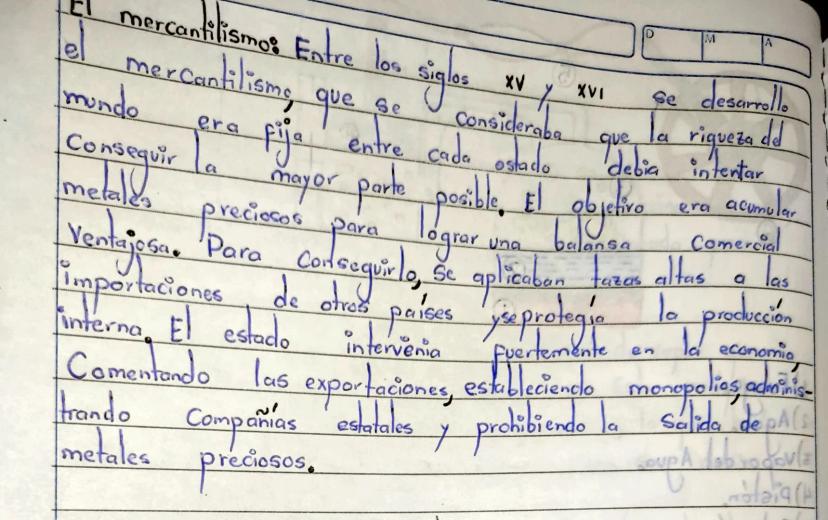 D M A
El mercantilismo: Entre los siglos XV y XVI se desarrollo
el mercantilismo, que se consideraba que la riqueza del
mundo era fija entre cada estado debia intentar
Conseguir la mayor parte posible. El objetivo era acumular
metales preciosos para lograr una balansa comercial
Ventajosa. Para conseguirlo, se aplicaban tazas altas a las
importaciones de otros países y se protegía la producción
interna. El estado intervenia fuertemente en la economia,
Comentando las exportaciones, estableciendo monopolios, adminis-
trando Compañías estatales y prohibiendo la Salida de
metales preciosos.